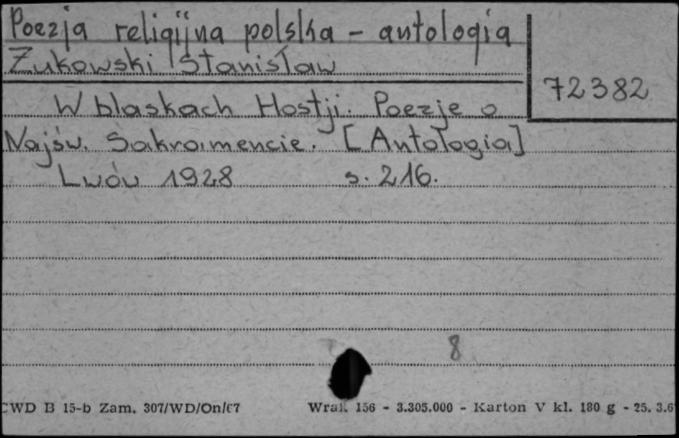 Poezja religijna polska - antologia
Żukowski Stanisław
72382
W blaskach Hostji. Poezje o
Najśw. Sakramencie. [Antologia]
Lwów 1928 s. 216.
8
CWD B 15-b Zam. 307/WD/On/67 Wrak. 156 - 3.305.000 - Karton V kl. 180 g - 25. 3.6